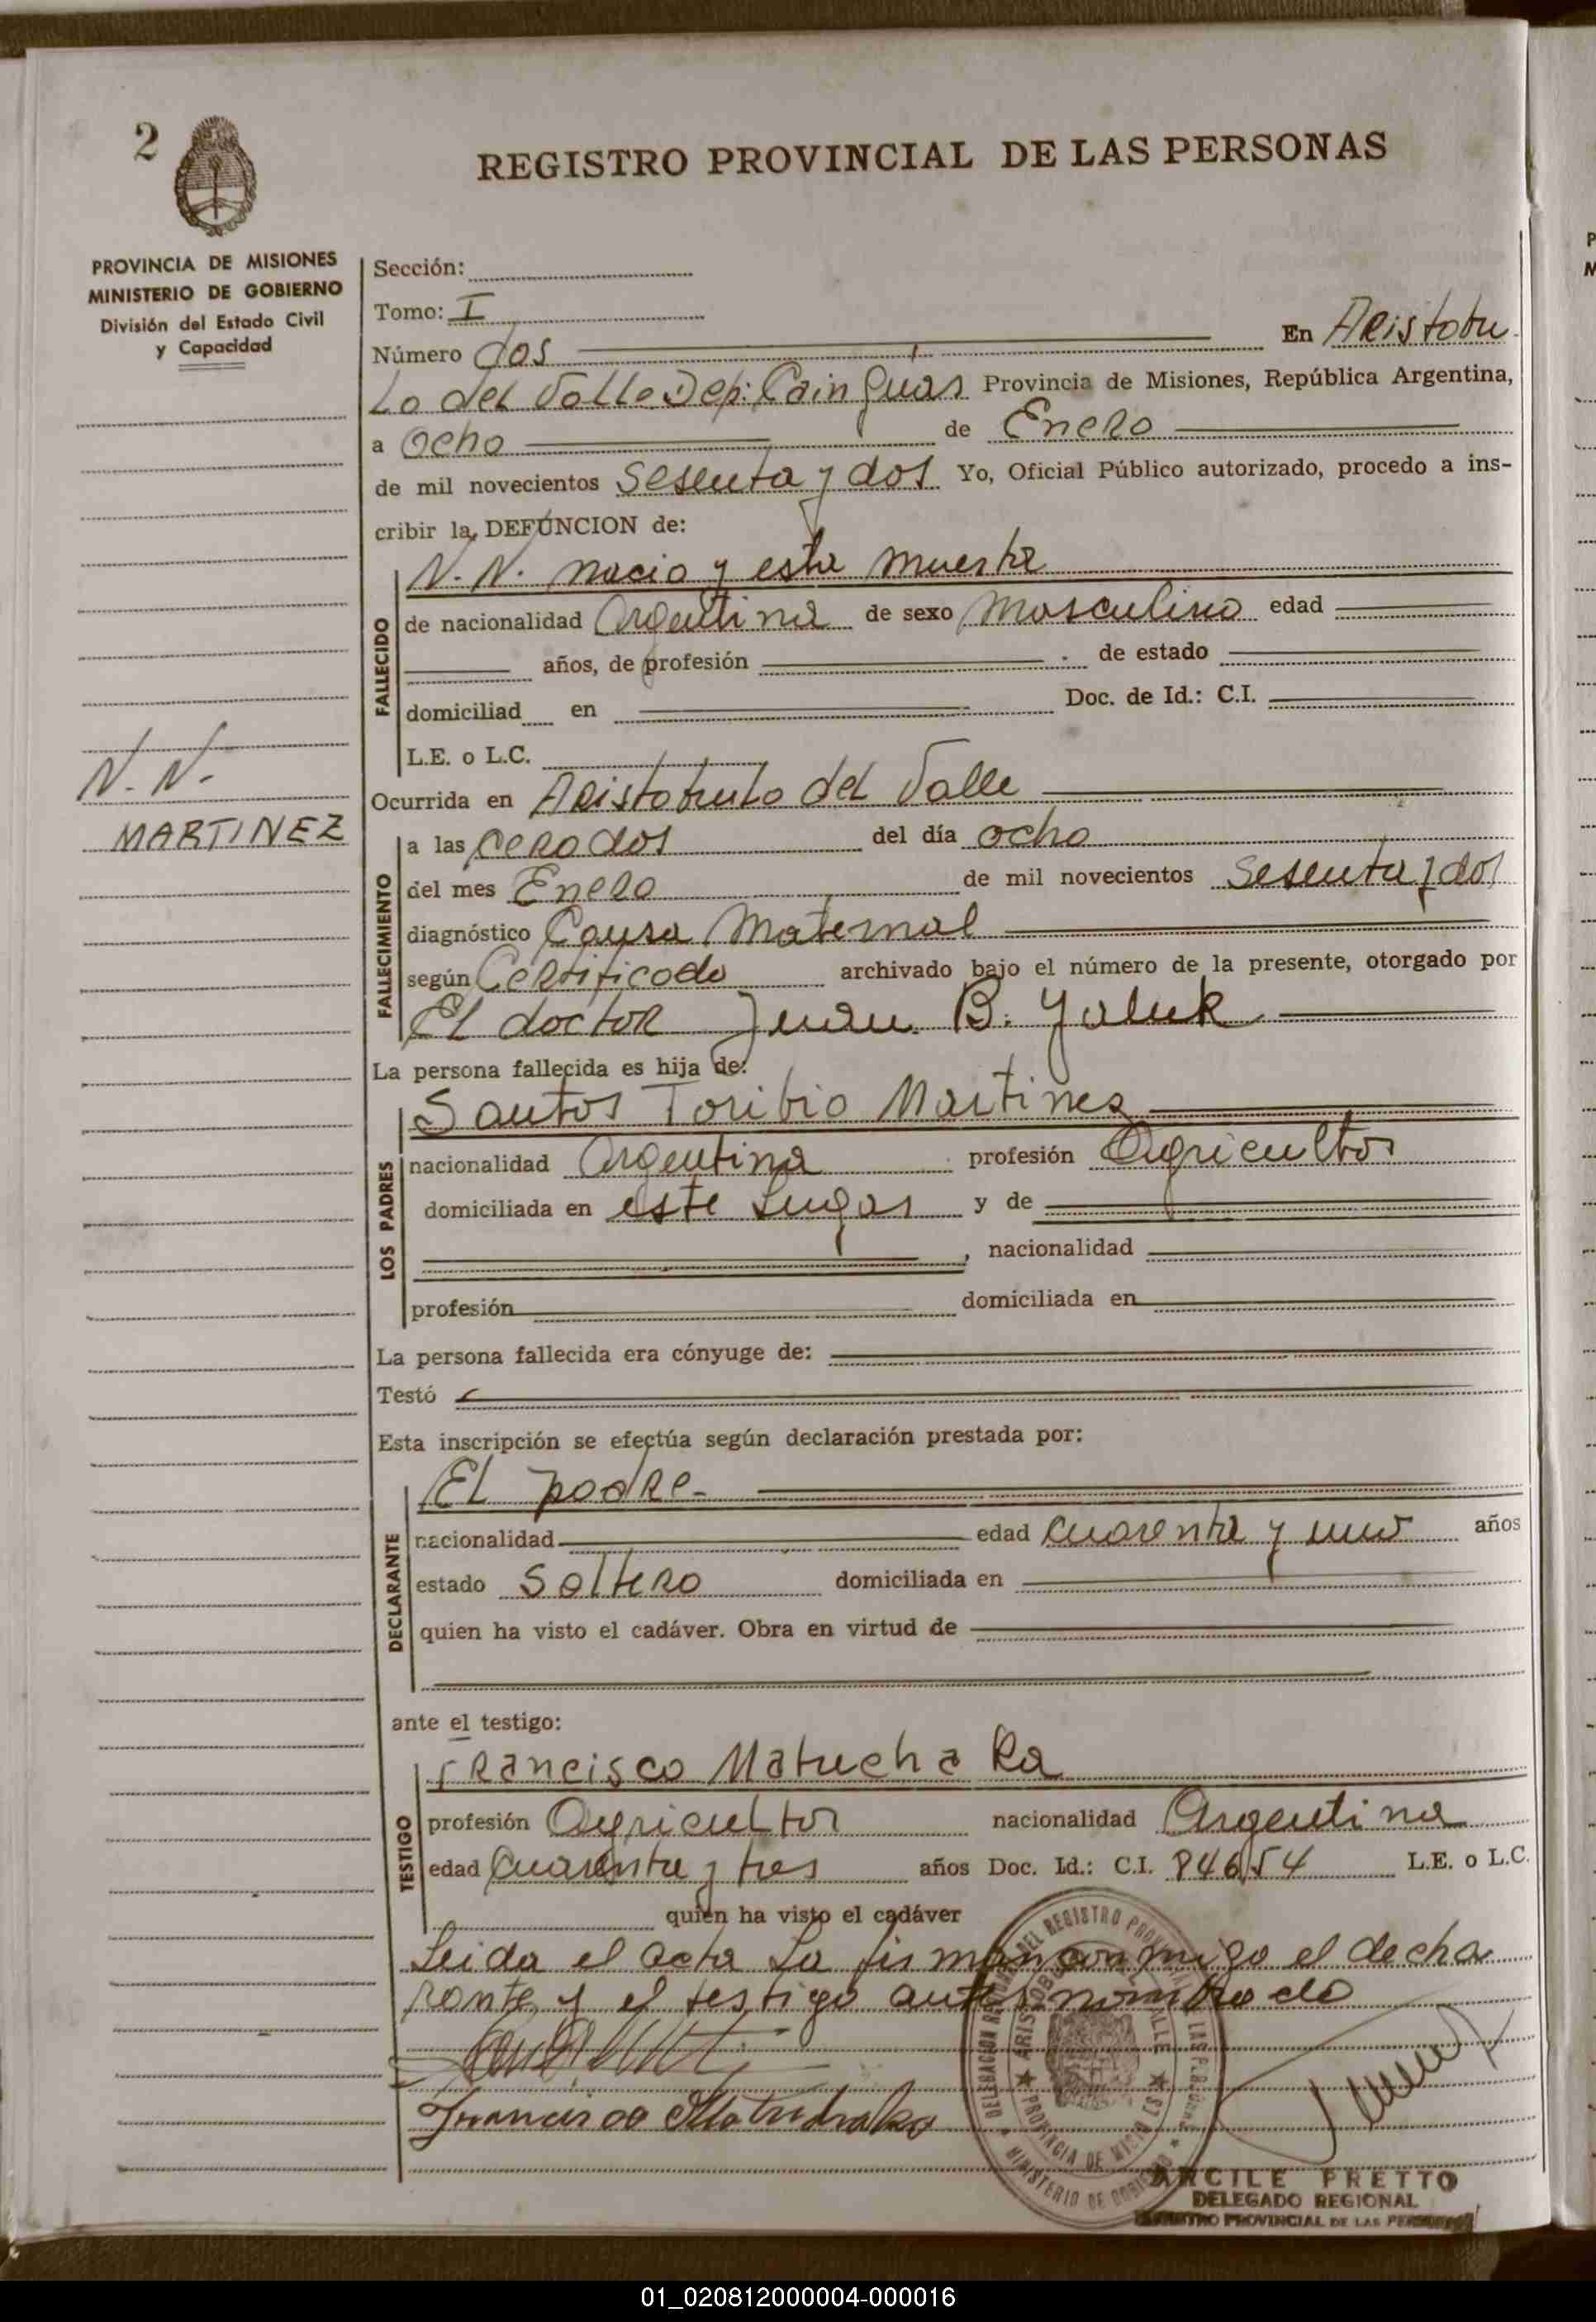 2
REGISTRO PROVINCIAL DE LAS PERSONAS
PROVINCIA DE MISIONES
MINISTERIO DE GOBIERNO
División del Estado Civil
y Capacidad
N. N.
MARTINEZ
Sección:
Tomo: I
Número dos En Aristobu
Lo del Valle Dep: Cain Guas Provincia de Misiones, República Argentina,
a Ocho de Enero
de mil novecientos Sesenta y dos Yo, Oficial Público autorizado, procedo a ins-
cribir la DEFUNCION de:
N. N. nacio y esta muerta
FALLECIDO
de nacionalidad Argentina de sexo Masculino edad
años, de profesión de estado
domiciliad en Doc. de Id.: C.I.
L.E. o L.C.
Ocurrida en Aristobulo del Valle
FALLECIMIENTO
a las cero dos del día ocho
del mes Enero de mil novecientos Sesenta y dos
diagnóstico Causa Maternal
según Certificado archivado bajo el número de la presente, otorgado por
El doctor Juan B. Yaluk
La persona fallecida es hija de:
Santos Toribio Martinez
LOS PADRES
nacionalidad Argentina profesión Agricultor
domiciliada en este Lugar y de
, nacionalidad
profesión domiciliada en
La persona fallecida era cónyuge de:
Testó
Esta inscripción se efectúa según declaración prestada por:
El padre-
DECLARANTE
nacionalidad edad cuarenta y uno años
estado Soltero domiciliada en
quien ha visto el cadáver. Obra en virtud de
ante el testigo:
Francisco Matucha Ra
TESTIGO
profesión Agricultor nacionalidad Argentina
edad Cuarenta y tres años Doc. Id.: C.I. 84654 L.E. o L.C.
quien ha visto el cadáver
Leida el acta La firman conmigo el decha
rante y el testigo antes nombrado
DELEGACION DEL REGISTRO PROVINCIAL DE LAS PERSONAS
ARISTOBULO DEL VALLE
PROVINCIA DE MISIONES
MINISTERIO DE GOBIERNO
ARCILE PRETTO
DELEGADO REGIONAL
REGISTRO PROVINCIAL DE LAS PERSONAS
01_020812000004-000016